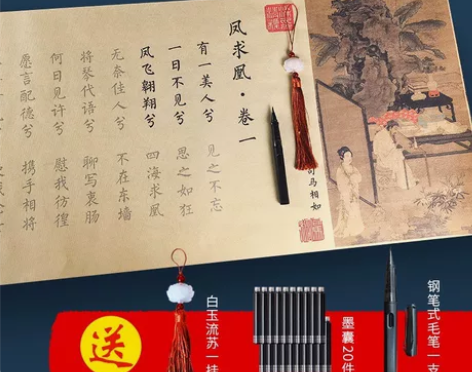 凤求凰·卷一
有一美人兮 见之不忘
一日不见兮 思之如狂
凤飞翱翔兮 四海求凰
无奈佳人兮 不在东墙
将琴代语兮 聊写衷肠
何日见许兮 慰我彷徨
愿言配德兮 携手相将
司马相如
送
白玉流苏一挂
墨囊20件
钢笔式毛笔一支